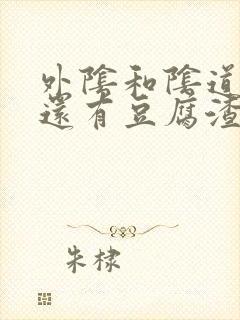 外陰和陰道
還有豆腐渣
朱棣